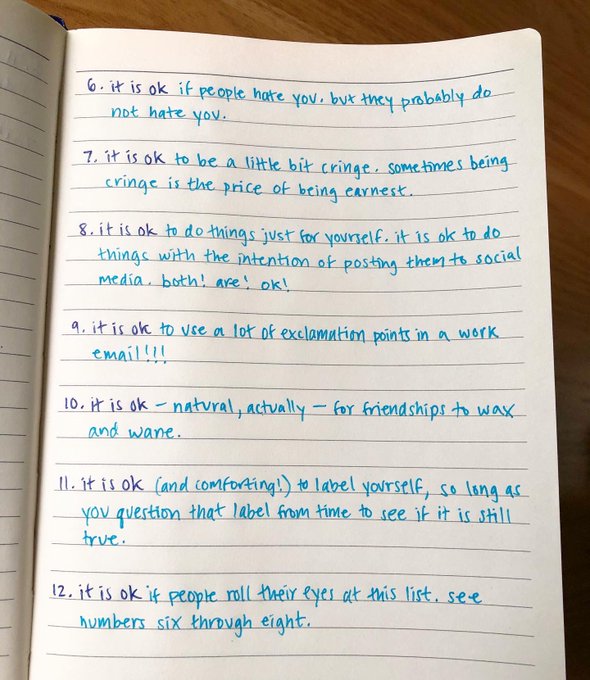 6. it is ok if people hate you. but they probably do
not hate you.
7. it is ok to be a little bit cringe. sometimes being
cringe is the price of being earnest.
8. it is ok to do things just for yourself. it is ok to do
things with the intention of posting them to social
media. both! are! ok!
9. it is ok to use a lot of exclamation points in a work
email!!!
10. it is ok – natural, actually – for friendships to wax
and wane.
11. it is ok (and comforting!) to label yourself, so long as
you question that label from time to see if it is still
true.
12. it is ok if people roll their eyes at this list. see
numbers six through eight.